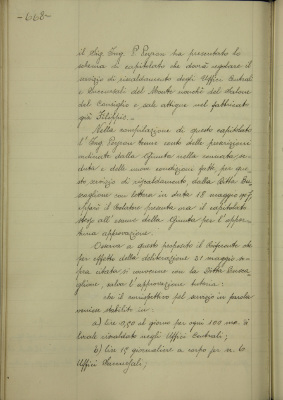 -668-
il Sig. Ing. P. Peyron ha presentato lo
schema di capitolato che dovrà regolare il
servizio di riscaldamento degli Uffici Centrali
e Succursali del Monte nonché del Salone
del Consiglio e sale attigue nel fabbricato
già Filippis.-
Nella compilazione di questo capitolato
l'Ing. Peyron tenne conto delle prescrizioni
ordinate dalla Giunta nella
e delle nuove condizioni fatte, per que-
sto servizio di riscaldamento, dalla Ditta
con lettera in data 18 maggio
il Relatore presenta ora il capitolato
all'esame della Giunta per l'oppor-
tuna approvazione.
Osserva a questo proposito il Referente che
per effetto della deliberazione 21 maggio so-
pra citata si convenne con la Ditta
salva l'approvazione tutoria:
che il corrispettivo pel servizio in parola
veniva stabilito in:
a) lire 0,50 al giorno per ogni 100 mc. di
locale riscaldato negli Uffici Centrali;
b) lire 15 giornaliere a corpo per n. 6
Uffici Succursali;